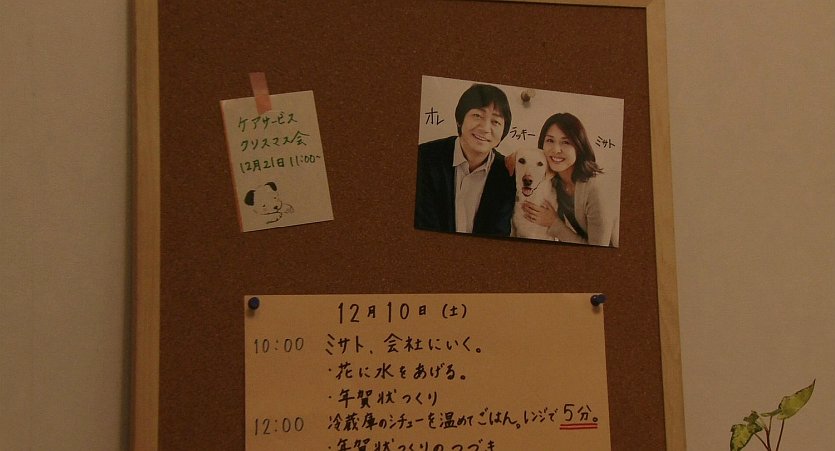 ケアサービス
クリスマス会
12月21日 11:00~
オレ
ラッキー
ミサト
12月10日 (土)
10:00 ミサト、会社にいく。
・花に水をあげる。
・年賀状つくり
12:00 冷蔵庫のシチューを温めてごはん。レンジで5分。
・年賀状つくりのつづき